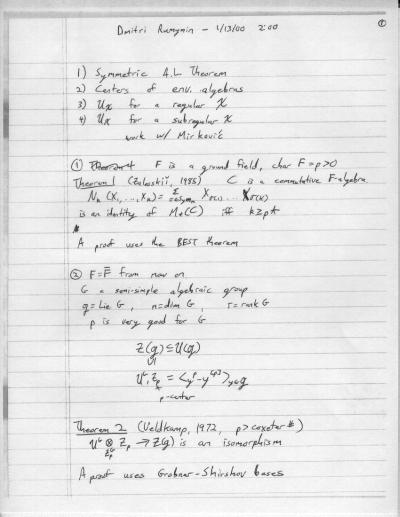 Dmitri Rumynin - 4/13/00 2:00
①
1) Symmetric A.L Theorem
2) Centers of env. algebras
3) Uχ for a regular χ
4) Uχ for a subregular χ
work w/ Mirković
① F is a ground field, char F = p > 0
Theorem 1 (Zalesskiĭ, 1985) C is a commutative F-algebra
Nk (X1, ..., Xk) = Σ σ∈Symk Xσ(1) ... Xσ(k)
is an identity of Mt(C) iff k ≥ pt
A proof uses the BEST theorem
② F = F̄ from now on
G a semi-simple algebraic group
g = Lie G, n = dim G, r = rank G
p is very good for G
Z(g) ⊆ U(g)
U^G, Zp = <y^p - y^[p]>y∈g
p-center
Theorem 2 (Veldkamp, 1972, p > coxeter #)
U^G ⊗ Zp → Z(g) is an isomorphism
Zp^G
A proof uses Grobner-Shirshov bases